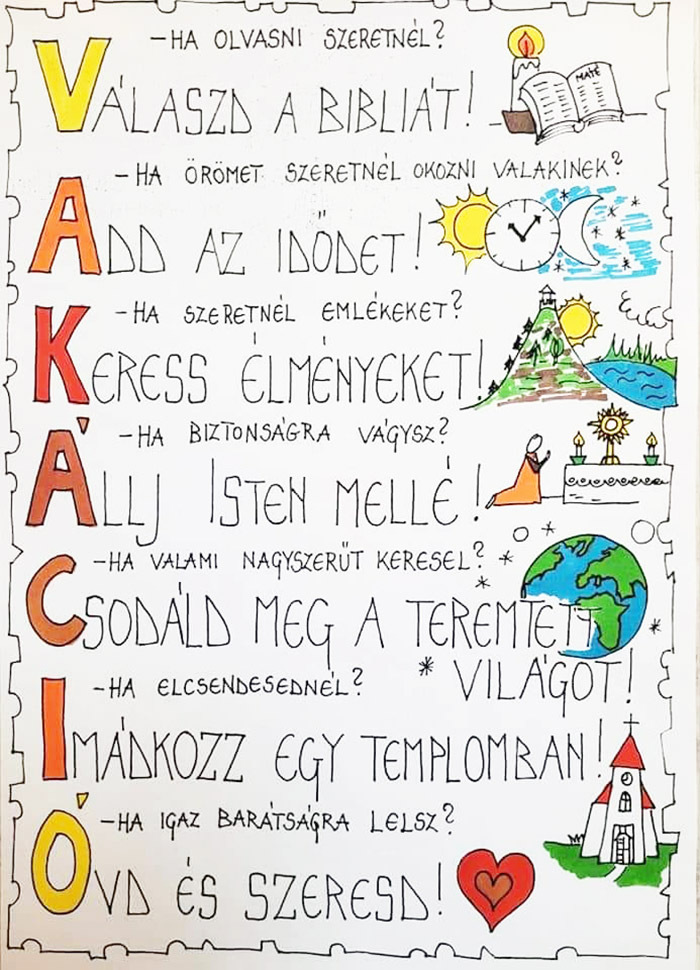 -HA OLVASNI SZERETNÉL?
VÁLASZD A BIBLIÁT!
MÁTÉ
-HA ÖRÖMET SZERETNÉL OKOZNI VALAKINEK?
ADD AZ IDŐDET!
-HA SZERETNÉL EMLÉKEKET?
KERESS ÉLMÉNYEKET!
-HA BIZTONSÁGRA VÁGYSZ?
ÁLLJ ISTEN MELLÉ!
-HA VALAMI NAGYSZERŰT KERESEL?
CSODÁLD MEG A TEREMTETT
VILÁGOT!
-HA ELCSENDESEDNÉL?
IMÁDKOZZ EGY TEMPLOMBAN!
-HA IGAZ BARÁTSÁGRA LELSZ?
ÓVD ÉS SZERESD!